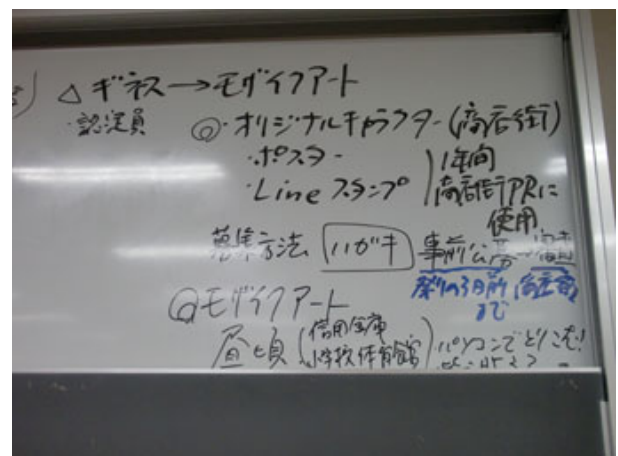 △ ギネス→モザイクアート
・認定員 ◎・オリジナルキャラクター(商店街)
・ポスター
・Line スタンプ
1年間
商店街PRに
使用
募集方法 ハガキ 事前公募→
祭りの3日前
まで
◎モザイクアート
昼頃(信用金庫
小学校体育館)
パソコンでとりこむ!